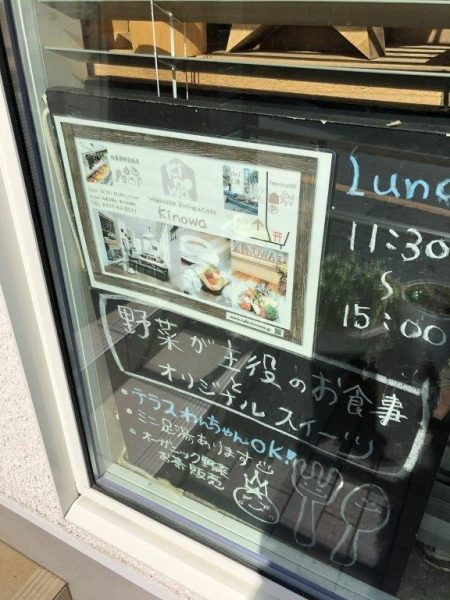 Vegetable Dining & Cafe
Kinowa
KINOWA
Lunc
11:30
〜
15:00
野菜が主役のお食事
と
オリジナルスイーツ
・テラスわんちゃんOK!
・ミニ足湯あります
・オーガニック野菜
お茶販売